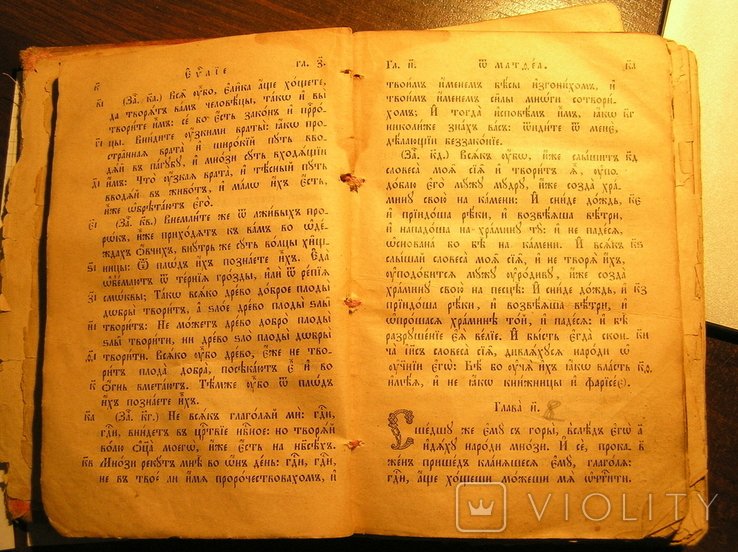 Єѵⷢ҇лїе гл. з.
в҃і (Заⷱ҇. к҃а.) Всѧ̑ ᲂу҆̀бо, є҆ли̑ка а҆́ще хо́щете,
да творѧ́тъ ва́мъ человѣ́цы, та́кѡ и҆ вы̀
твори́те и҆̀мъ: се́ бо є҆́сть зако́нъ и҆ прⷪ҇ро́-
г҃і цы. Вни́дите ᲂу҆́зкими враты̀: ꙗ҆́кѡ про-
стра́ннаѧ врата̀ и҆ широ́кїй пу́ть вво-
дѧ́й въ па́губу, и҆ мно́зи су́ть входѧ́щїи
д҃і и҆́мъ: Что̀ ᲂу҆́зкаѧ врата̀, и҆ тѣ́сный пу́ть
вводѧ́й въ живо́тъ, и҆ ма́лѡ и҆́хъ є҆́сть,
и҆̀же ѡ҆брѣта́ютъ є҆го̀.
є҃і (Заⷱ҇. к҃в.) Внемли́те же ѿ лжи́выхъ про-
рѡ́къ, и҆̀же прихо́дѧтъ къ ва́мъ во ѻ҆де́-
ждахъ ѻ҆́вчихъ, вну́трь же су́ть во́лцы хи̑щ-
ѕ҃і ницы: Ѿ плѡ́дъ и҆́хъ позна́ете и҆̀хъ. Є҆да̀
ѡ҆б̾е́млютъ ѿ те́рнїѧ гро́зды, и҆лѝ ѿ ре́пїѧ
з҃і смѡ́квы; Та́кѡ всѧ́ко дре́во до́брое плоды̀
дѡбры̀ твори́тъ, а҆ ѕло́е дре́во плоды̀ ѕлы̑
и҃і твори́тъ: Не мо́жетъ дре́во добро̀ плоды̀
ѕлы̑ твори́ти, ни дре́во ѕло̀ плоды̀ дѡбры̀
ѳ҃і твори́ти. Всѧ́ко ᲂу҆̀бо дре́во, є҆́же не тво-
ри́тъ плода̀ добра̀, посѣка́ютъ є҆̀ и҆ во
к҃ ѻ҆́гнь вмета́ютъ. Тѣ́мже ᲂу҆̀бо ѿ плѡ́дъ
и҆́хъ позна́ете и҆̀хъ.
к҃а (Заⷱ҇. к҃г.) Не всѧ́къ глаго́лѧй мѝ: гдⷭ҇и,
гдⷭ҇и, вни́детъ въ црⷭ҇твїе нбⷭ҇ное: но творѧ́й
во́лю ѻ҆ц҃а̀ моегѡ̀, и҆́же є҆́сть на нб҃сѣ́хъ.
к҃в Мно́зи реку́тъ мнѣ̀ во ѻ҆́нъ де́нь: гдⷭ҇и, гдⷭ҇и,
не въ твое́ ли и҆́мѧ проро́чествовахомъ, и҆
Гл. и҃. Ѿ матѳе́а. к҃а
твои́мъ и҆́менемъ бѣ́сы и҆згони́хомъ, и҆
твои́мъ и҆́менемъ си̑лы мнѡ́ги сотвори́-
хомъ; И҆ тогда̀ и҆сповѣ́мъ и҆̀мъ, ꙗ҆́кѡ к҃г
николи́же зна́хъ ва́съ: ѿиди́те ѿ менє̀,
дѣ́лающїи беззако́нїе.
(Заⷱ҇. к҃д.) Всѧ́къ ᲂу҆́бѡ, и҆́же слы́шитъ к҃д
словеса̀ моѧ̑ сїѧ̑ и҆ твори́тъ ѧ҆̀, ᲂу҆по-
до́блю є҆го̀ му́жу му́дру, и҆́же созда̀ хра́-
мину свою̀ на ка́мени: И҆ сни́де до́ждь, к҃є
и҆ прїидо́ша рѣ́ки, и҆ возвѣ́ѧша вѣ́три,
и҆ нападо́ша на хра́мину ту̀: и҆ не паде́сѧ,
ѡ҆снована́ бо бѣ̀ на ка́мени. И҆ всѧ́къ к҃ѕ
слы́шай словеса̀ моѧ̑ сїѧ̑, и҆ не творѧ̀ и҆́хъ,
ᲂу҆подо́битсѧ му́жу ᲂу҆ро́диву, и҆́же созда̀
хра́мину свою̀ на песцѣ̀: И҆ сни́де до́ждь, и҆ к҃з
прїидо́ша рѣ́ки, и҆ возвѣ́ѧша вѣ́три, и҆
ѡ҆про́шасѧ хра́минѣ то́й, и҆ паде́сѧ: и҆ бѣ̀
разруше́нїе є҆ѧ̀ ве́лїе. И҆ бы́сть є҆гда̀ скон- к҃и
ча̀ і҆и҃съ словеса̀ сїѧ̑, дивлѧ́хусѧ наро́ди ѡ҆
ᲂу҆че́нїи є҆гѡ̀: Бѣ́ бо ᲂу҆чѧ̀ и҆̀хъ ꙗ҆́кѡ вла́сть к҃ѳ
и҆мѣ́ѧ, и҆ не ꙗ҆́кѡ кни́жницы и҆ фарїсе́(є).
Глава̀ и҃.
Сше́дшу же є҆мꙋ̀ съ горы̀, в̾слѣ́дъ є҆гѡ̀ а҃
и҆дѧ́ху наро́ди мно́зи. И҆ сѐ, прока- в҃
же́нъ прише́дъ кла́нѧшесѧ є҆му̀, глаго́лѧ:
гдⷭ҇и, а҆́ще хо́щеши мо́жеши мѧ̀ ѡ҆чи́стити.
VIOLITY